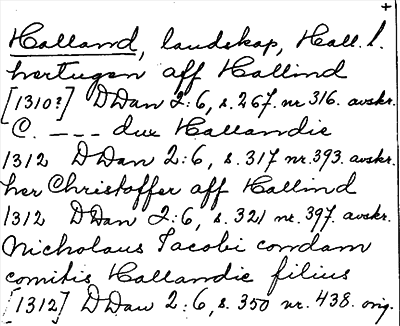 +
Halland, landskap, Hall. l.
hertugen aff Hallind
[1310?] DDan 2:6, s. 267. nr 316. avskr.
C. --- dux Hallandie
1312 DDan 2:6, s. 317 nr. 393. avskr.
her Christoffer aff Hallind
1312 DDan 2:6, s. 321 nr. 397. avskr.
Nicholaus Jacobi condam
comitis Hallandie filius
[1312] DDan 2:6, s. 350 nr. 438. orig.